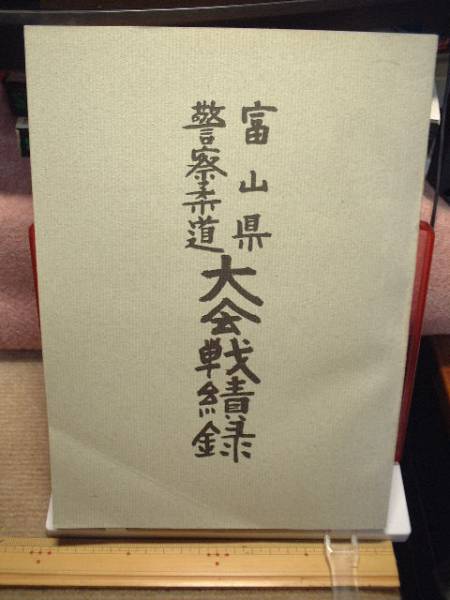 富山県
警察柔道
大会戦績録